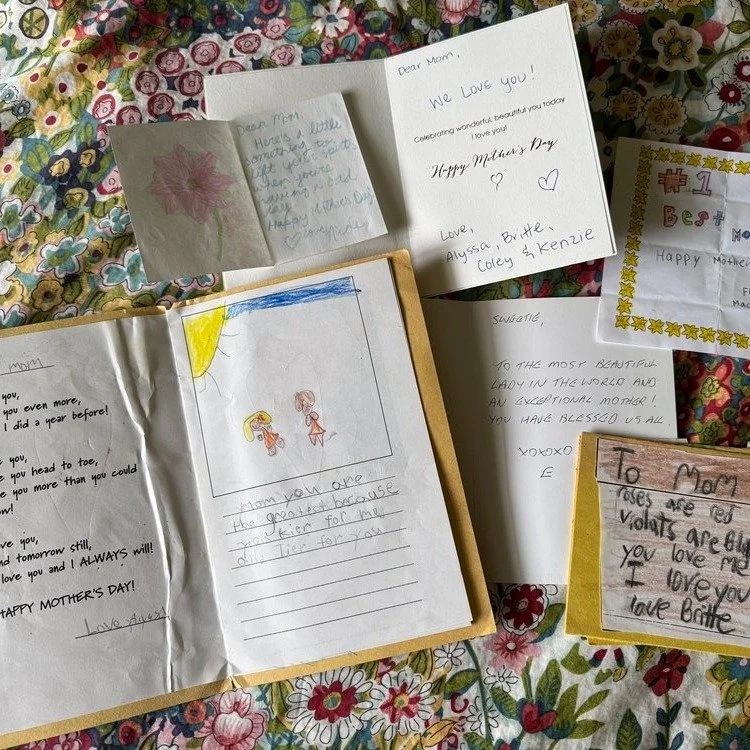 Dear Mom,
We Love you!
Celebrating wonderful, beautiful you today
I love you!
Happy Mother's Day
Love,
Alyssa, Britte,
Coley & Kenzie
Dear Mom,
Here's a little
something to
lift your spirits
when you're
having a bad
day.
Happy Mothers Day!
Love
#1
Best
Happy
SWEETIE,
TO THE MOST BEAUTIFUL
LADY IN THE WORLD AND
AN EXCEPTIONAL MOTHER!
YOU HAVE BLESSED US ALL.
XOXOXO
E
mom
you,
you even more,
I did a year before!
you,
you head to toe,
you more than you could
you,
tomorrow still,
love you and I ALWAYS will!
HAPPY MOTHER'S DAY!
Love
mom you are
the greatest because
you kier for me
and I ier for you
To Mom
roses are red
violats are
you love me
I love you
love Britte